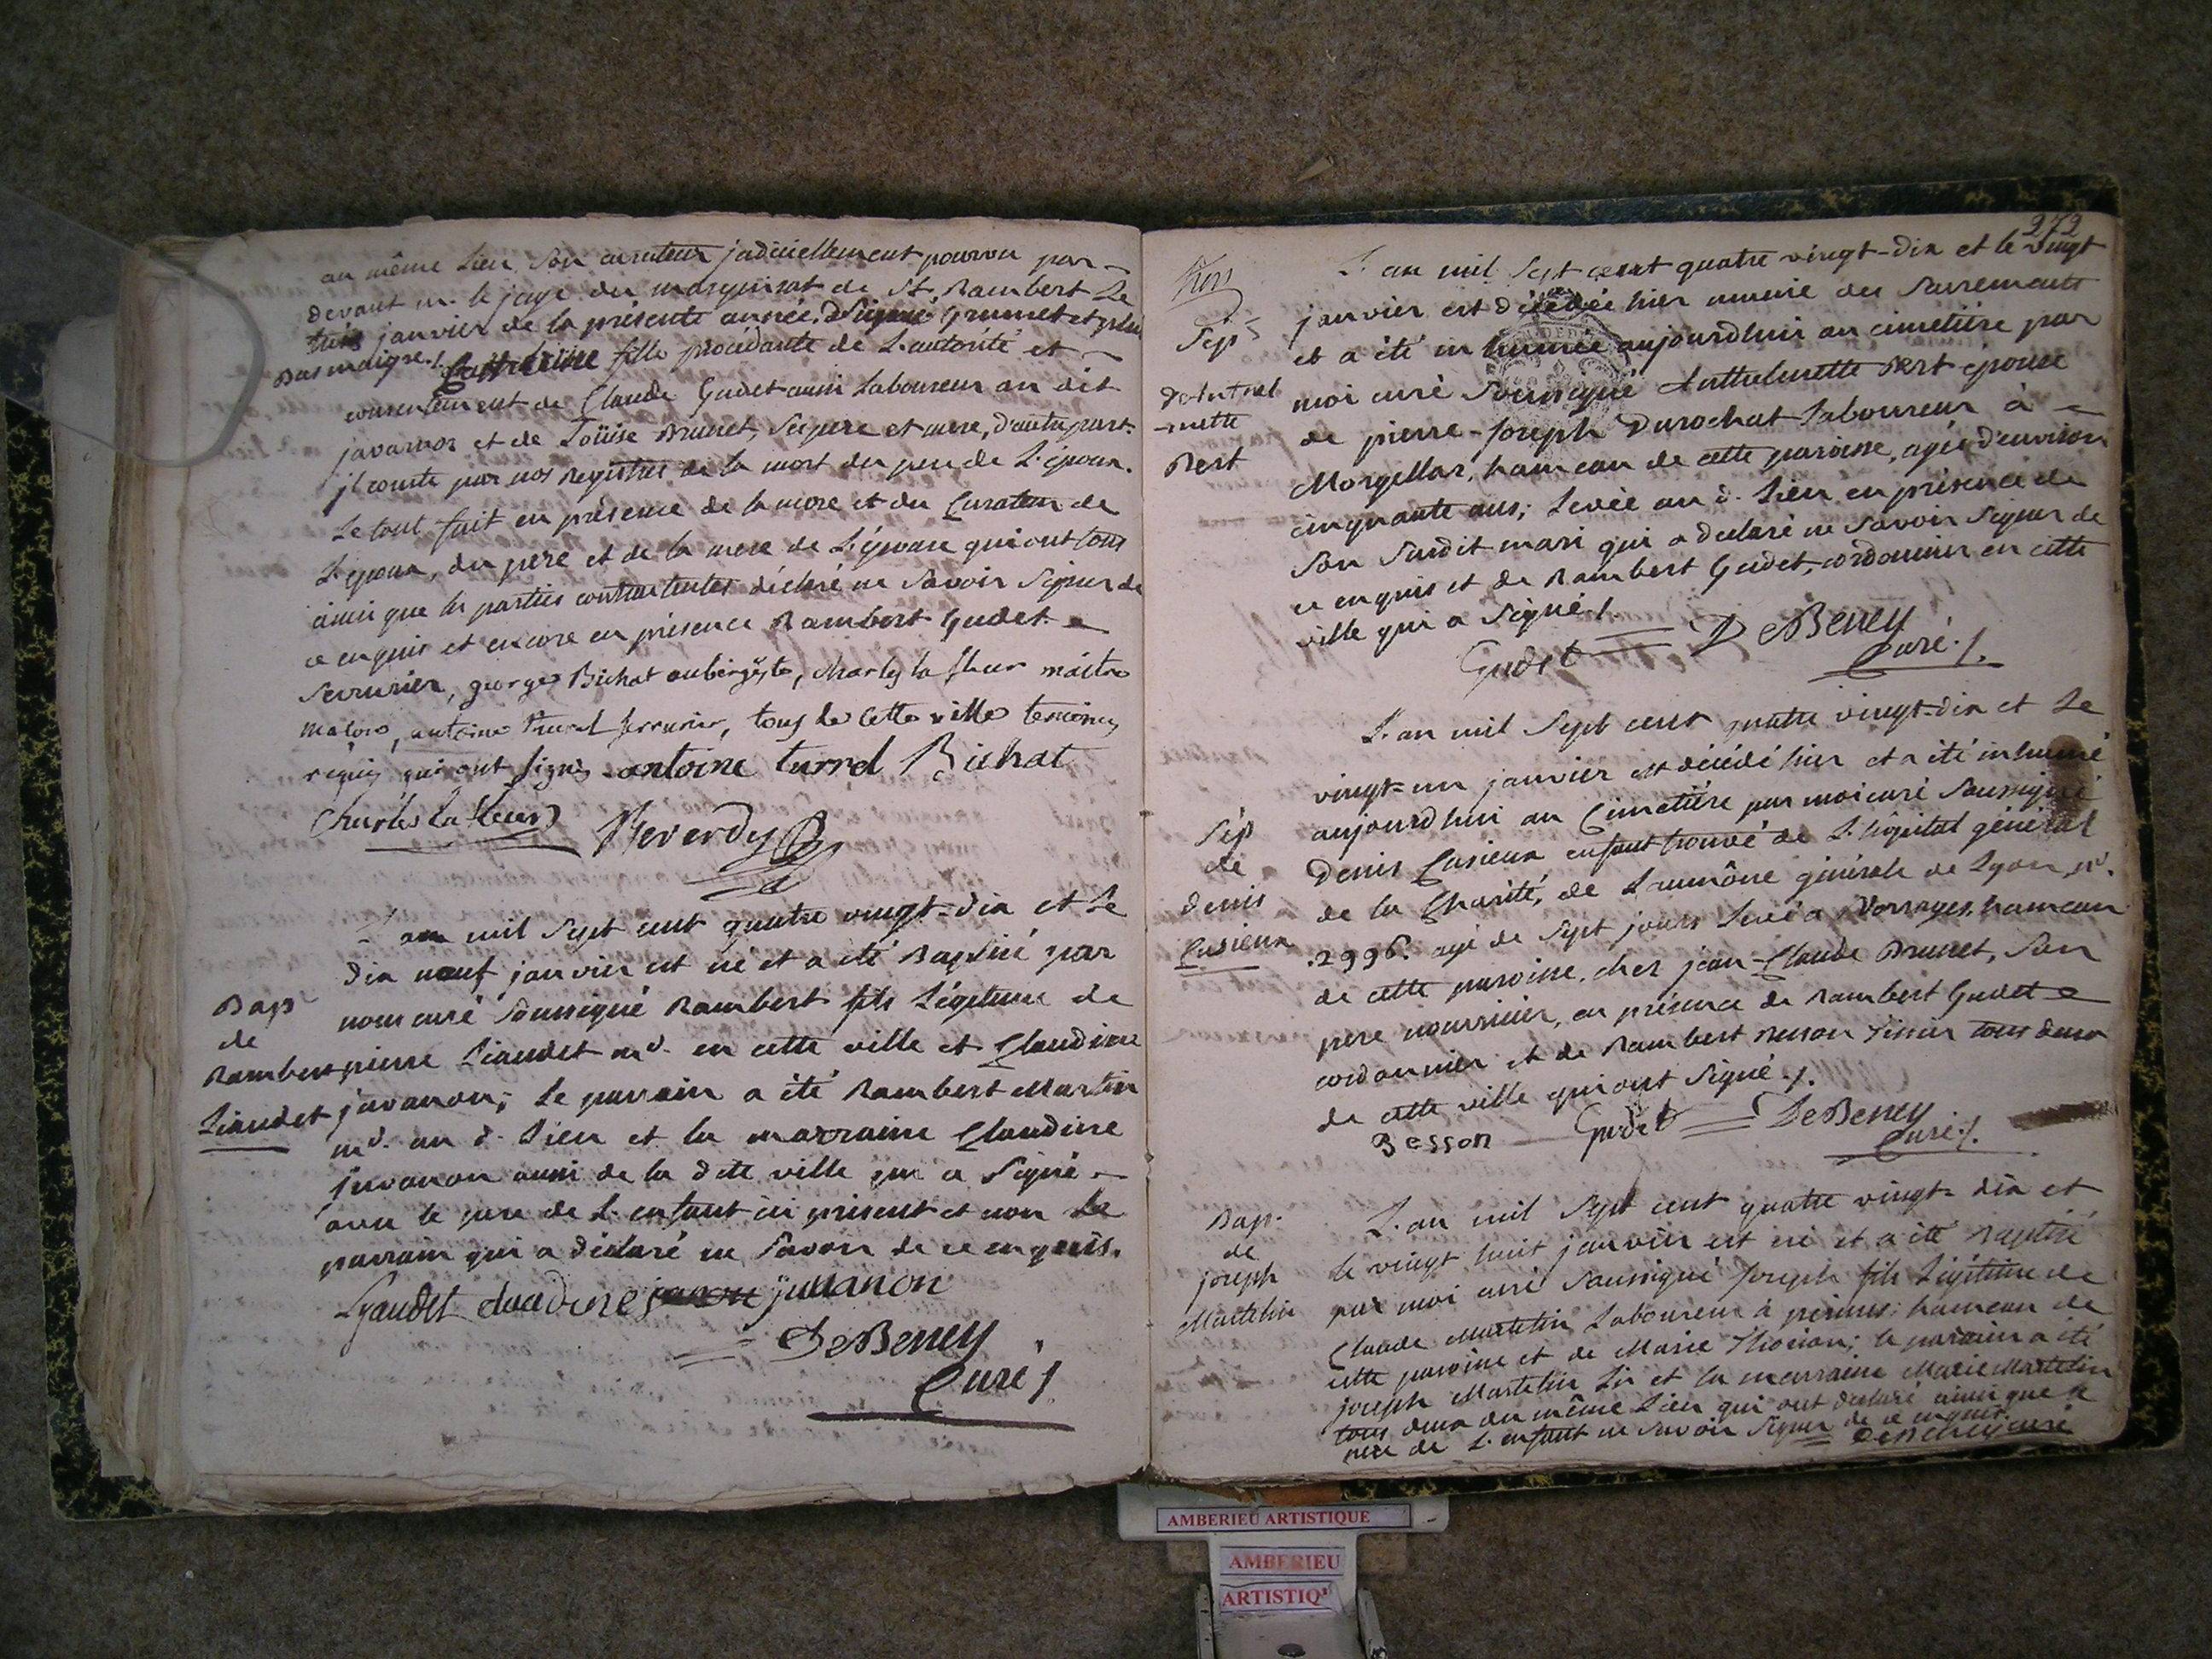 au même Lieu, son curateur judiciellement pourvu par
devant m. le juge du marquisat de St. Rambert Le
trois janvier de la présente année, Signé Grumet et plus
bas maigre./. Catherine fille procédante de L'autorité et
consentement de Claude Gudet aussi Laboureur au dit
javornoz et de Loüise Brunet, ses pere et mere, d'autre part.
jl conste par nos Registres de la mort du pere de L'epoux.
Le tout fait en présence de la mere et du Curateur de
L'epoux, du pere et de la mere de L'épouse qui ont tous
ainsi que les parties contractantes déclaré ne savoir signer de
ce enquis et encore en présence Rambert Gudet
serrurier, george Bichat aubergiste, charles la fleur maitre
maçon, antoine turrel serrurier, tous de cette ville temoins
requis qui ont signés antoine turrel Bichat
Charles la fleur Reverdy
L'an mil sept cent quatre vingt-dix et Le
dix neuf janvier est né et a été Baptisé par
nous curé soussigné Rambert fils Légitime de
pierre Liaudet md. en cette ville et Claudine
javanon; Le parrain a été Rambert Martin
md. au d. Lieu et la marraine Claudine
juvanon aussi de la dite ville qui a signé
avec le pere de L'enfant ici présent et non Le
parrain qui a déclaré ne savoir de ce enquis.
Bap
de
Rambert
Liaudet
Lyaudet claudine juvanon
DeBeney
Curé /.
272
L'an mil sept cent quatre vingt-dix et le vingt
janvier est décédée hier munie des sacrements
et a été inhumée aujourdhuit au cimetiére par
moi curé soussigné Anthelmette Bert epouse
de pierre-joseph Durochat Laboureur à
Morgellas, hameau de cette paroisse, agée d'environ
cinquante ans; Levée au d. Lieu en présence de
son susdit mari qui a déclaré ne savoir signer de
ce enquis et de Rambert Gudet, cordonnier en cette
ville qui a signé./.
Sep
d'Anthel
-mette
Bert
Gudet DeBeney
Curé./.
L'an mil sept cent quatre vingt-dix et Le
vingt-un janvier est décédé hier et a été inhumé
aujourdhui au Cimetiére par moi curé soussigné
Denis Cusieux enfant trouvé de L'hôpital général
de la Charité, de L'aumône générale de Lyon, n°.
.2996. agé de sept jours Levé a Vorrages, hameau
de cette paroisse, chez jean-Claude Brunet, son
pere nourricier, en présence de Rambert Gudet
cordonnier et de Rambert Besson tissier tous deux
de cette ville qui ont signé./.
Sép
de
denis
Cusieux
Besson Gudet DeBeney
Curé./.
L'an mil sept cent quatre vingt-dix et
le vingt huit janvier est né et a été Baptisé
par moi curé soussigné joseph fils Légitime de
Claude Martelin Laboureur à hameau de
cette paroisse et de Marie le parrain a été
joseph Martelin et la marraine Marie Martelin
tous deux du même Lieu qui ont declaré ainsi que le
pere de L'enfant ne savoir signer de ce enquis.
DeBeney curé
Bap.
de
joseph
Martelin
AMBERIEU ARTISTIQUE
AMBERIEU
ARTISTIQ